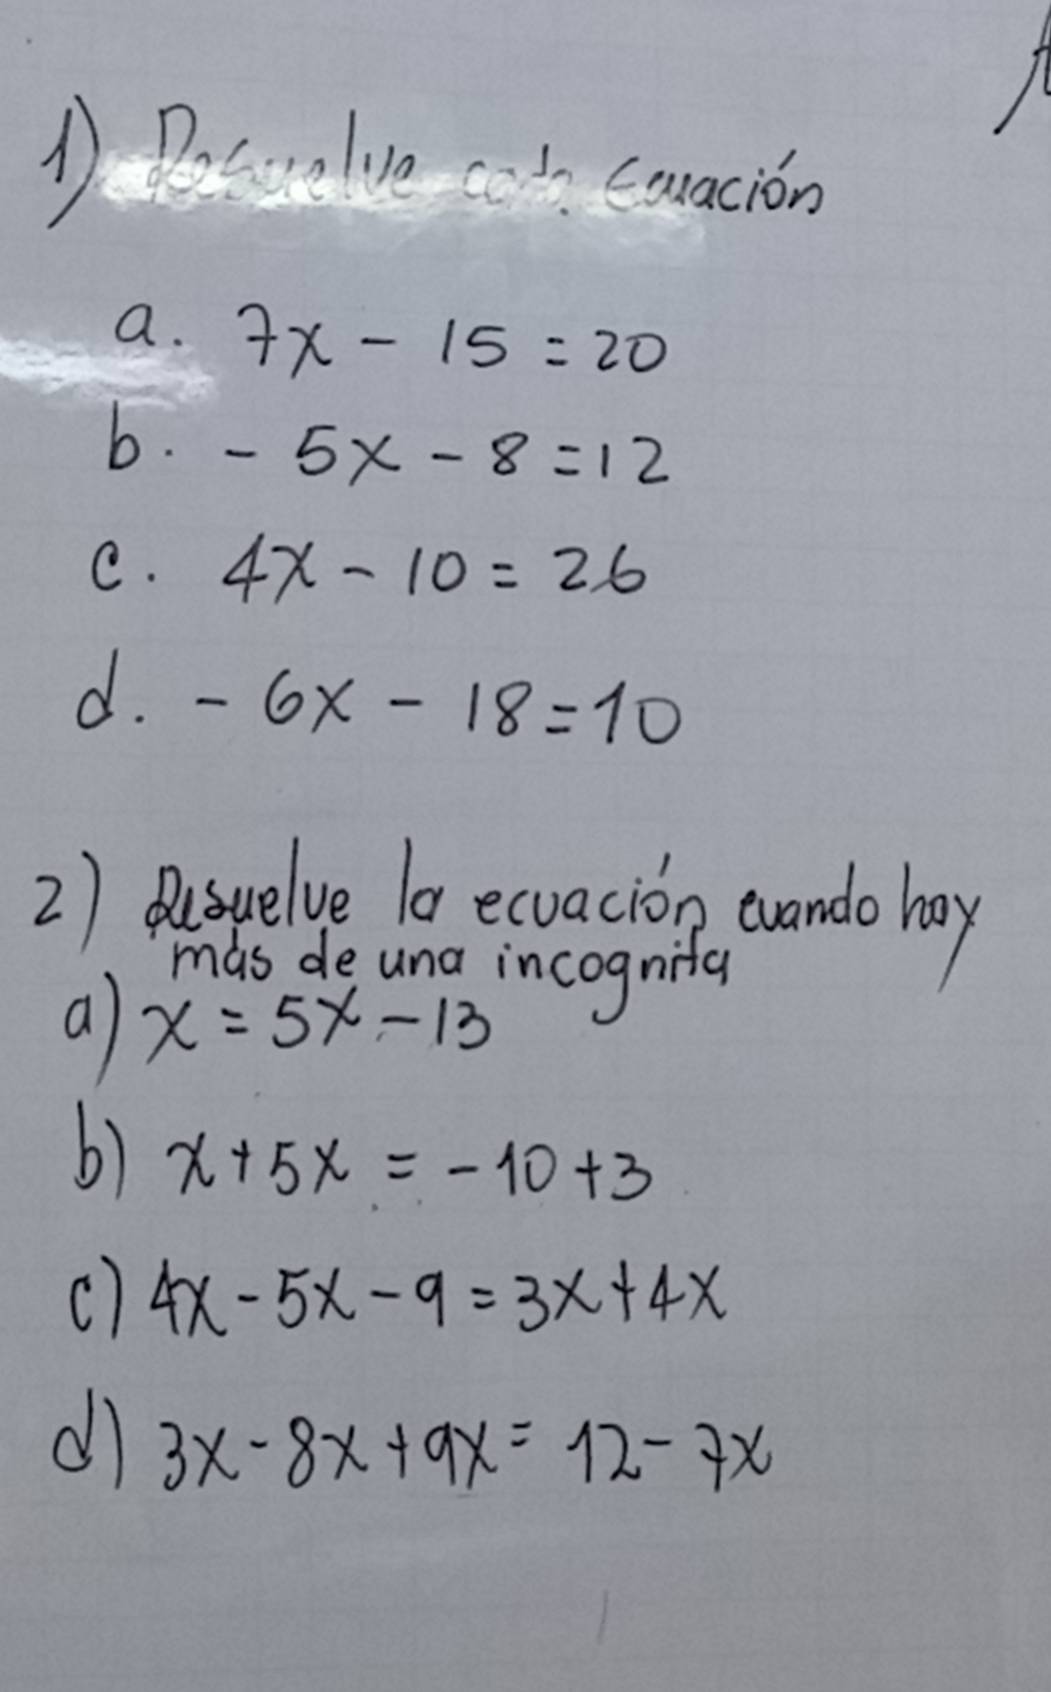 1) Resuelve cada Ecuación
a. 7x - 15 = 20
b. - 5x - 8 = 12
c. 4x - 10 = 26
d. - 6x - 18 = 10
2) Resuelve la ecuación cuando hay
más de una incognita
a) x = 5x - 13
b) x + 5x = - 10 + 3
c) 4x - 5x - 9 = 3x + 4x
d) 3x - 8x + 9x = 12 - 7x